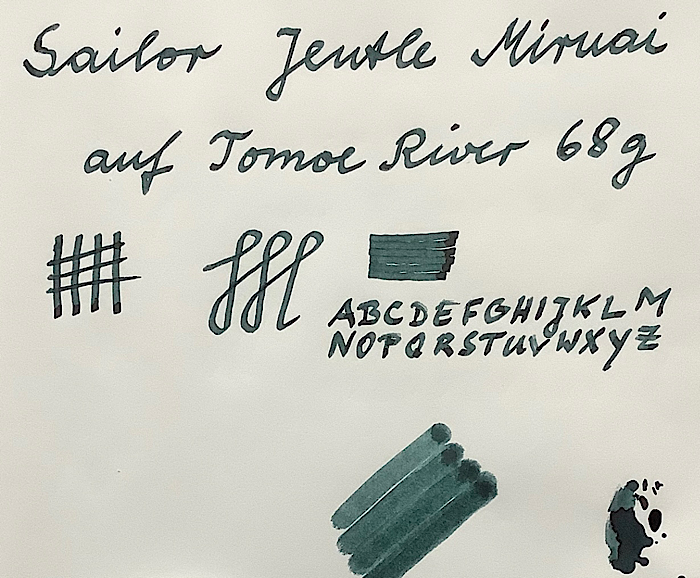 Sailor Jentle Miruai
auf Tomoe River 68g
ABCDEFGHIJKLM
NOPQRSTUVWXYZ